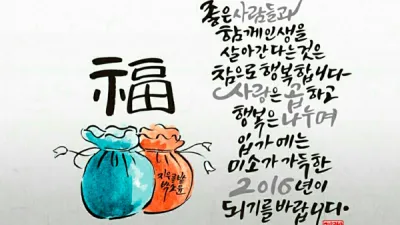 福
좋은 사람들과
함께 인생을
살아간다는 것은
참으로 행복합니다
사랑은 곱하고
행복은 나누며
입가에는
미소가 가득한
2016년이
되기를 바랍니다.